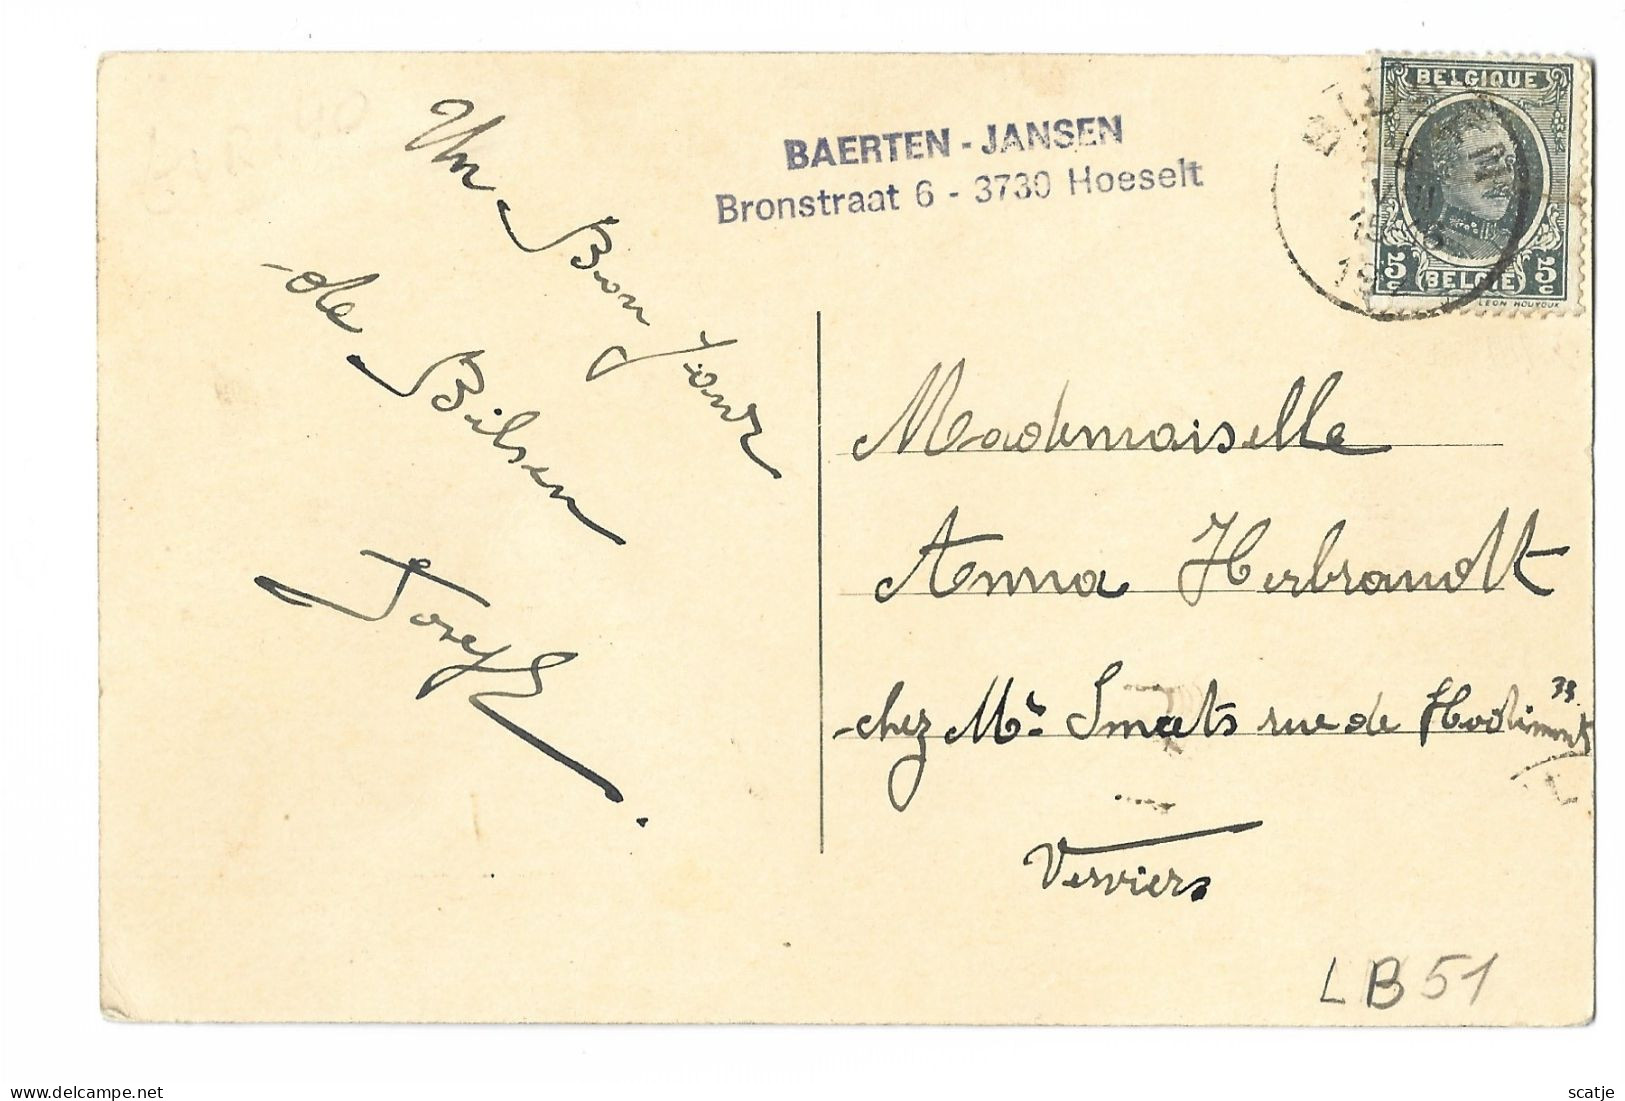 Un Bon Jour
de Bilsen
Joseph.
BAERTEN - JANSEN
Bronstraat 6 - 3730 Hoeselt
BELGIQUE
5c BELGIË 5c
LEON HOUYOUX
Mademoiselle
Anna Herbrandt
chez Mr Smets rue de Hodimont
33
Verviers
LB51
scatje